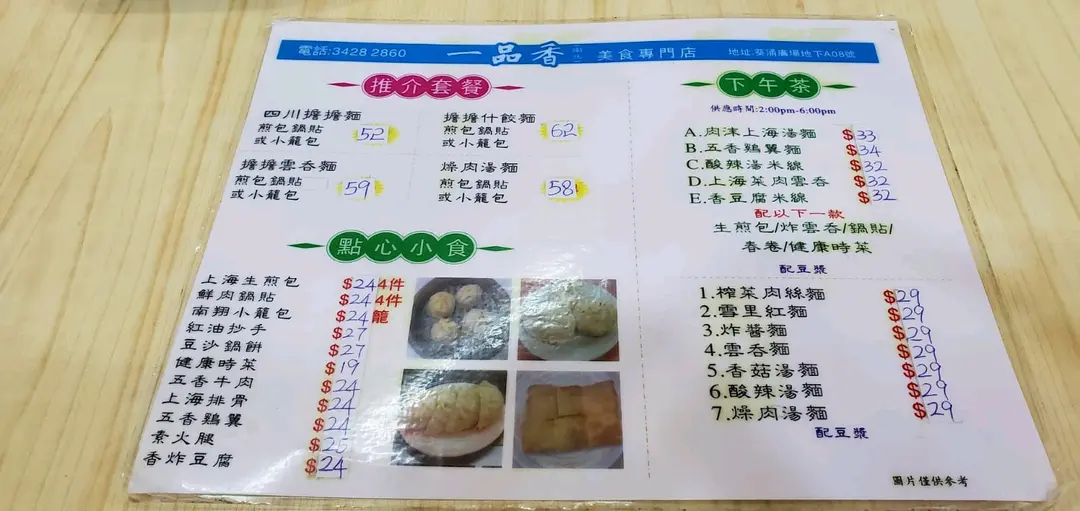 電話:3428 2860
一品香
美食專門店
地址:葵涌廣場地下A08號
推介套餐
四川擔擔麵
煎包鍋貼
或小籠包
52
擔擔什餃麵
煎包鍋貼
或小籠包
62
擔擔雲呑麵
煎包鍋貼
或小籠包
59
燥肉湯麵
煎包鍋貼
或小籠包
58
點心小食
上海生煎包 $24 4件
鮮肉鍋貼 $24 4件
南翔小籠包 $24 籠
紅油抄手 $27
豆沙鍋餅 $27
健康時菜 $19
五香牛肉 $24
上海排骨 $24
五香鷄翼 $24
素火腿 $25
香炸豆腐 $24
下午茶
供應時間:2:00pm-6:00pm
A.肉沬上海湯麵 $33
B.五香鷄翼麵 $34
C.酸辣湯米線 $32
D.上海菜肉雲呑 $32
E.香豆腐米線 $32
配以下一款
生煎包/炸雲呑/鍋貼/
春卷/健康時菜
配豆漿
1.榨菜肉絲麵 $29
2.雪里紅麵 $29
3.炸醬麵 $29
4.雲呑麵 $29
5.香菇湯麵 $29
6.酸辣湯麵 $29
7.燥肉湯麵 $29
配豆漿
圖片僅供參考